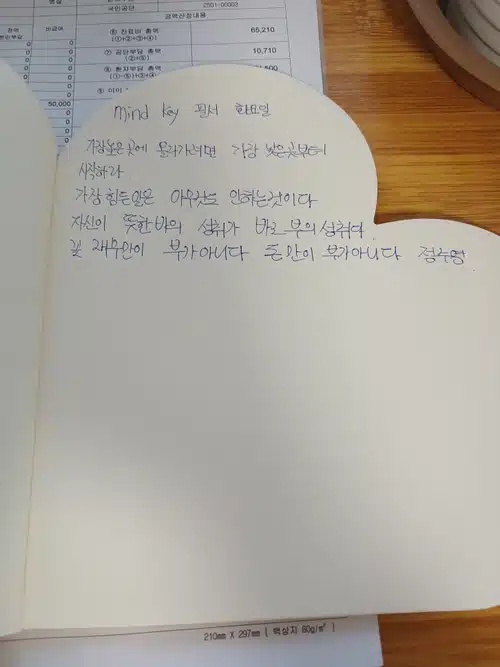 국민공단
2001-00003
금액산정내용
비급여
⑥ 진료비 총액
(①+②+③+④)
65,210
⑦ 공단부담 총액
(①+③+④)
10,710
⑧ 환자부담 총액
(①-⑤)+③+④
,500
50,000
0
mind key 필서 화요일
가장높은곳에 올라가려면 가장 낮은곳부터
시작하라
가장 힘든일은 아무것도 안하는것이다
자신이 뜻한바의 성취가 바로 부의성취다.
꼭 재수만이 부가아니다 돈만이 부가아니다 정수영
210mm X 297mm [ 백상지 80g/m² ]